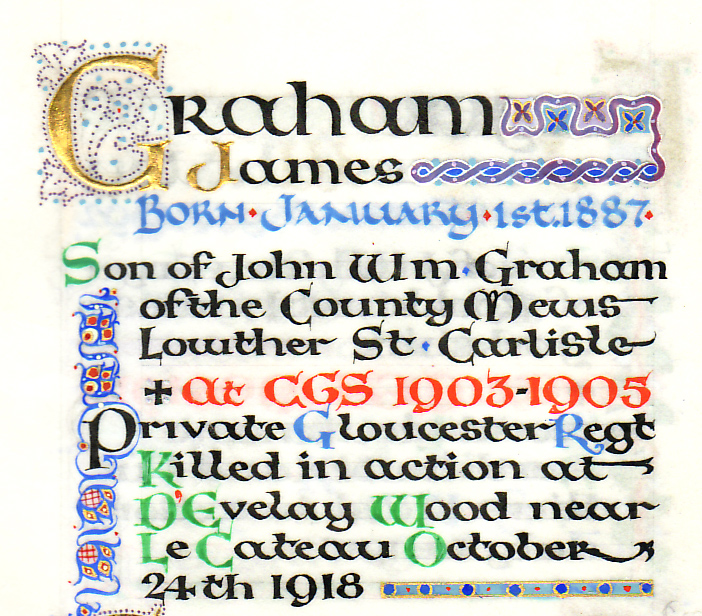 Graham
James
Born · January · 1st. 1887 ·
Son of John Wm · Graham
of the County Mews
Lowther St · Carlisle
+ at CGS 1903-1905
Private Gloucester Regt
Killed in action at
D'Evelay Wood near
Le Cateau October
24th 1918